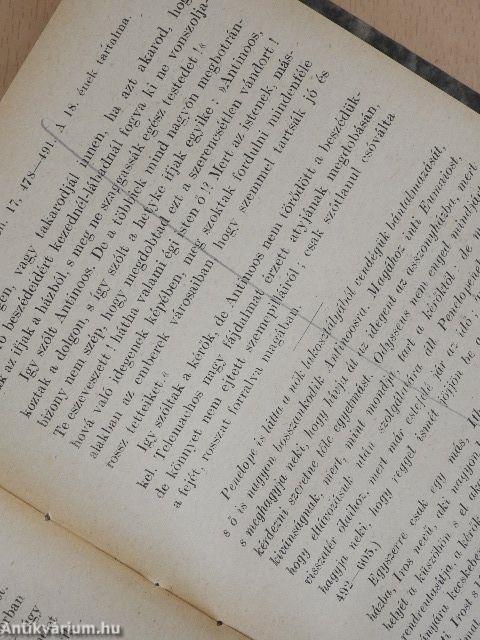 17, 478—491. A 18. ének tartalma.
gen, vagy takarodjál innen, ha azt akarod, hogy
ó beszédeidért kezednél-lábadnál fogva ki ne vonszolja-
ak az ifjak a házból, s meg ne szaggassák egész testedet!«
Így szólt Antinoos. De a többiek mind nagyon megbotrán-
koztak a dolgon, s így szólt a hetyke ifjak egyike: »Antinoos,
bizony nem szép, hogy megdobtad ezt a szerencsétlen vándort!
Te eszeveszett; hátha valami égi isten ő!? Mert az istenek, más-
hová való idegenek képében, meg szoktak fordulni mindenféle
alakban az emberek városaiban, hogy szemmel tartsák jó és
rossz tetteiket.«
Így szóltak a kérők, de Antinoos nem törődött a beszédük-
kel. Telemachos nagy fájdalmat érzett attyjának megdobásán,
de könnyet nem ejtett szempilláiról; csak szótlanul csóválta
a fejét, rosszat forralva magában.
Penelope is látta a nők lakosztályából vendégük bántalmazását,
s ő is nagyon bosszankodik Antinoosra. Magához inti Eumaiost,
s meghagyja neki, hogy hívja át az idegent az asszonyházba, mert
kérdezni szeretne tőle egyetmást. Odysseus nem enged mindjárt
kívánságnak, mert, mint mondja, tart a kérőktől: de m
hogy eltávozásuk után szolgálatára áll Penelopénak
visszatér disznaihoz, mert már estefelé jár az idő;
hagyja neki, hogy reggel ismét jöjjön be a
492—605.)
Egyszerre csak egy más, Ith
házba, Iros nevű, aki nagyon
helyét a küszöbön s el akar
rendreutasítja, a kérők
nyára kecskebe
ti Irost s l
ában
hogy
Antikvárium.hu